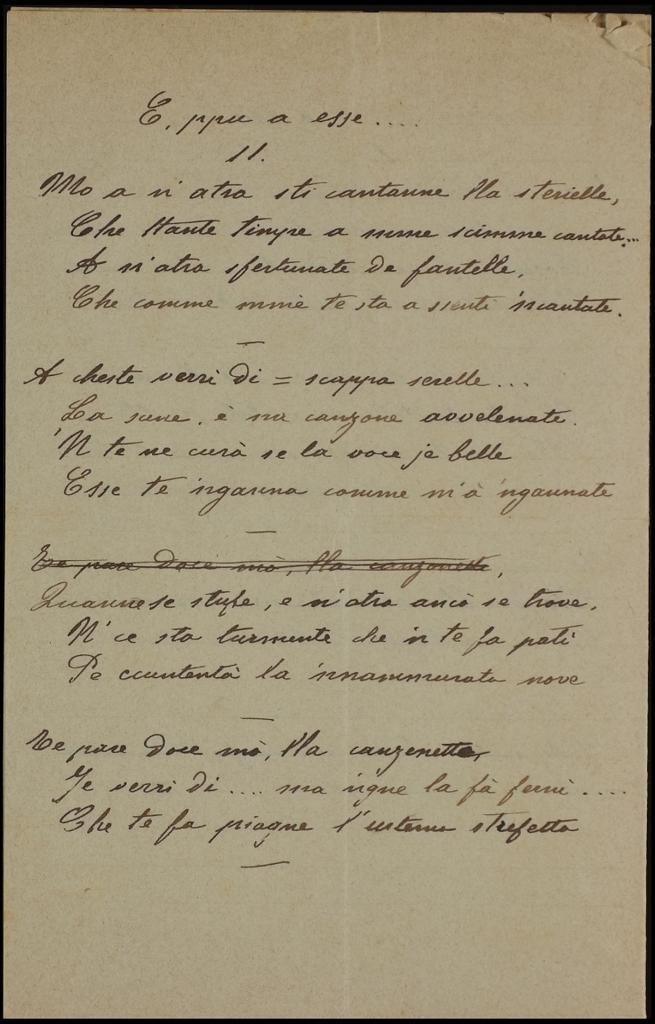 E, ppu a esse ....
11.
Mo a n'atra sti cantanne lla sterielle,
Che ttante timpe a nune scimme cantate...
A n'atra sfertunate de fantelle,
Che comme mmè te sta a sentì 'ncantate.
A cheste verrì dì = scappa serelle...
La sune, è na canzone avvelenate.
'N te ne curà se la voce jè belle
Esse te 'ngarna comme m'à 'ngannate
Te pare doce mò, lla canzonette,
Quannese stufe, e n'atra ancò se trove,
N' ce sta turmente che n te fa patì
Pe ccuntentà la 'nnammurata nove
Te pare doce mò, lla canzonette,
Je verrì dì .... ma 'igne la fà fernì ....
Che te fa piagne l'urtema strefetta